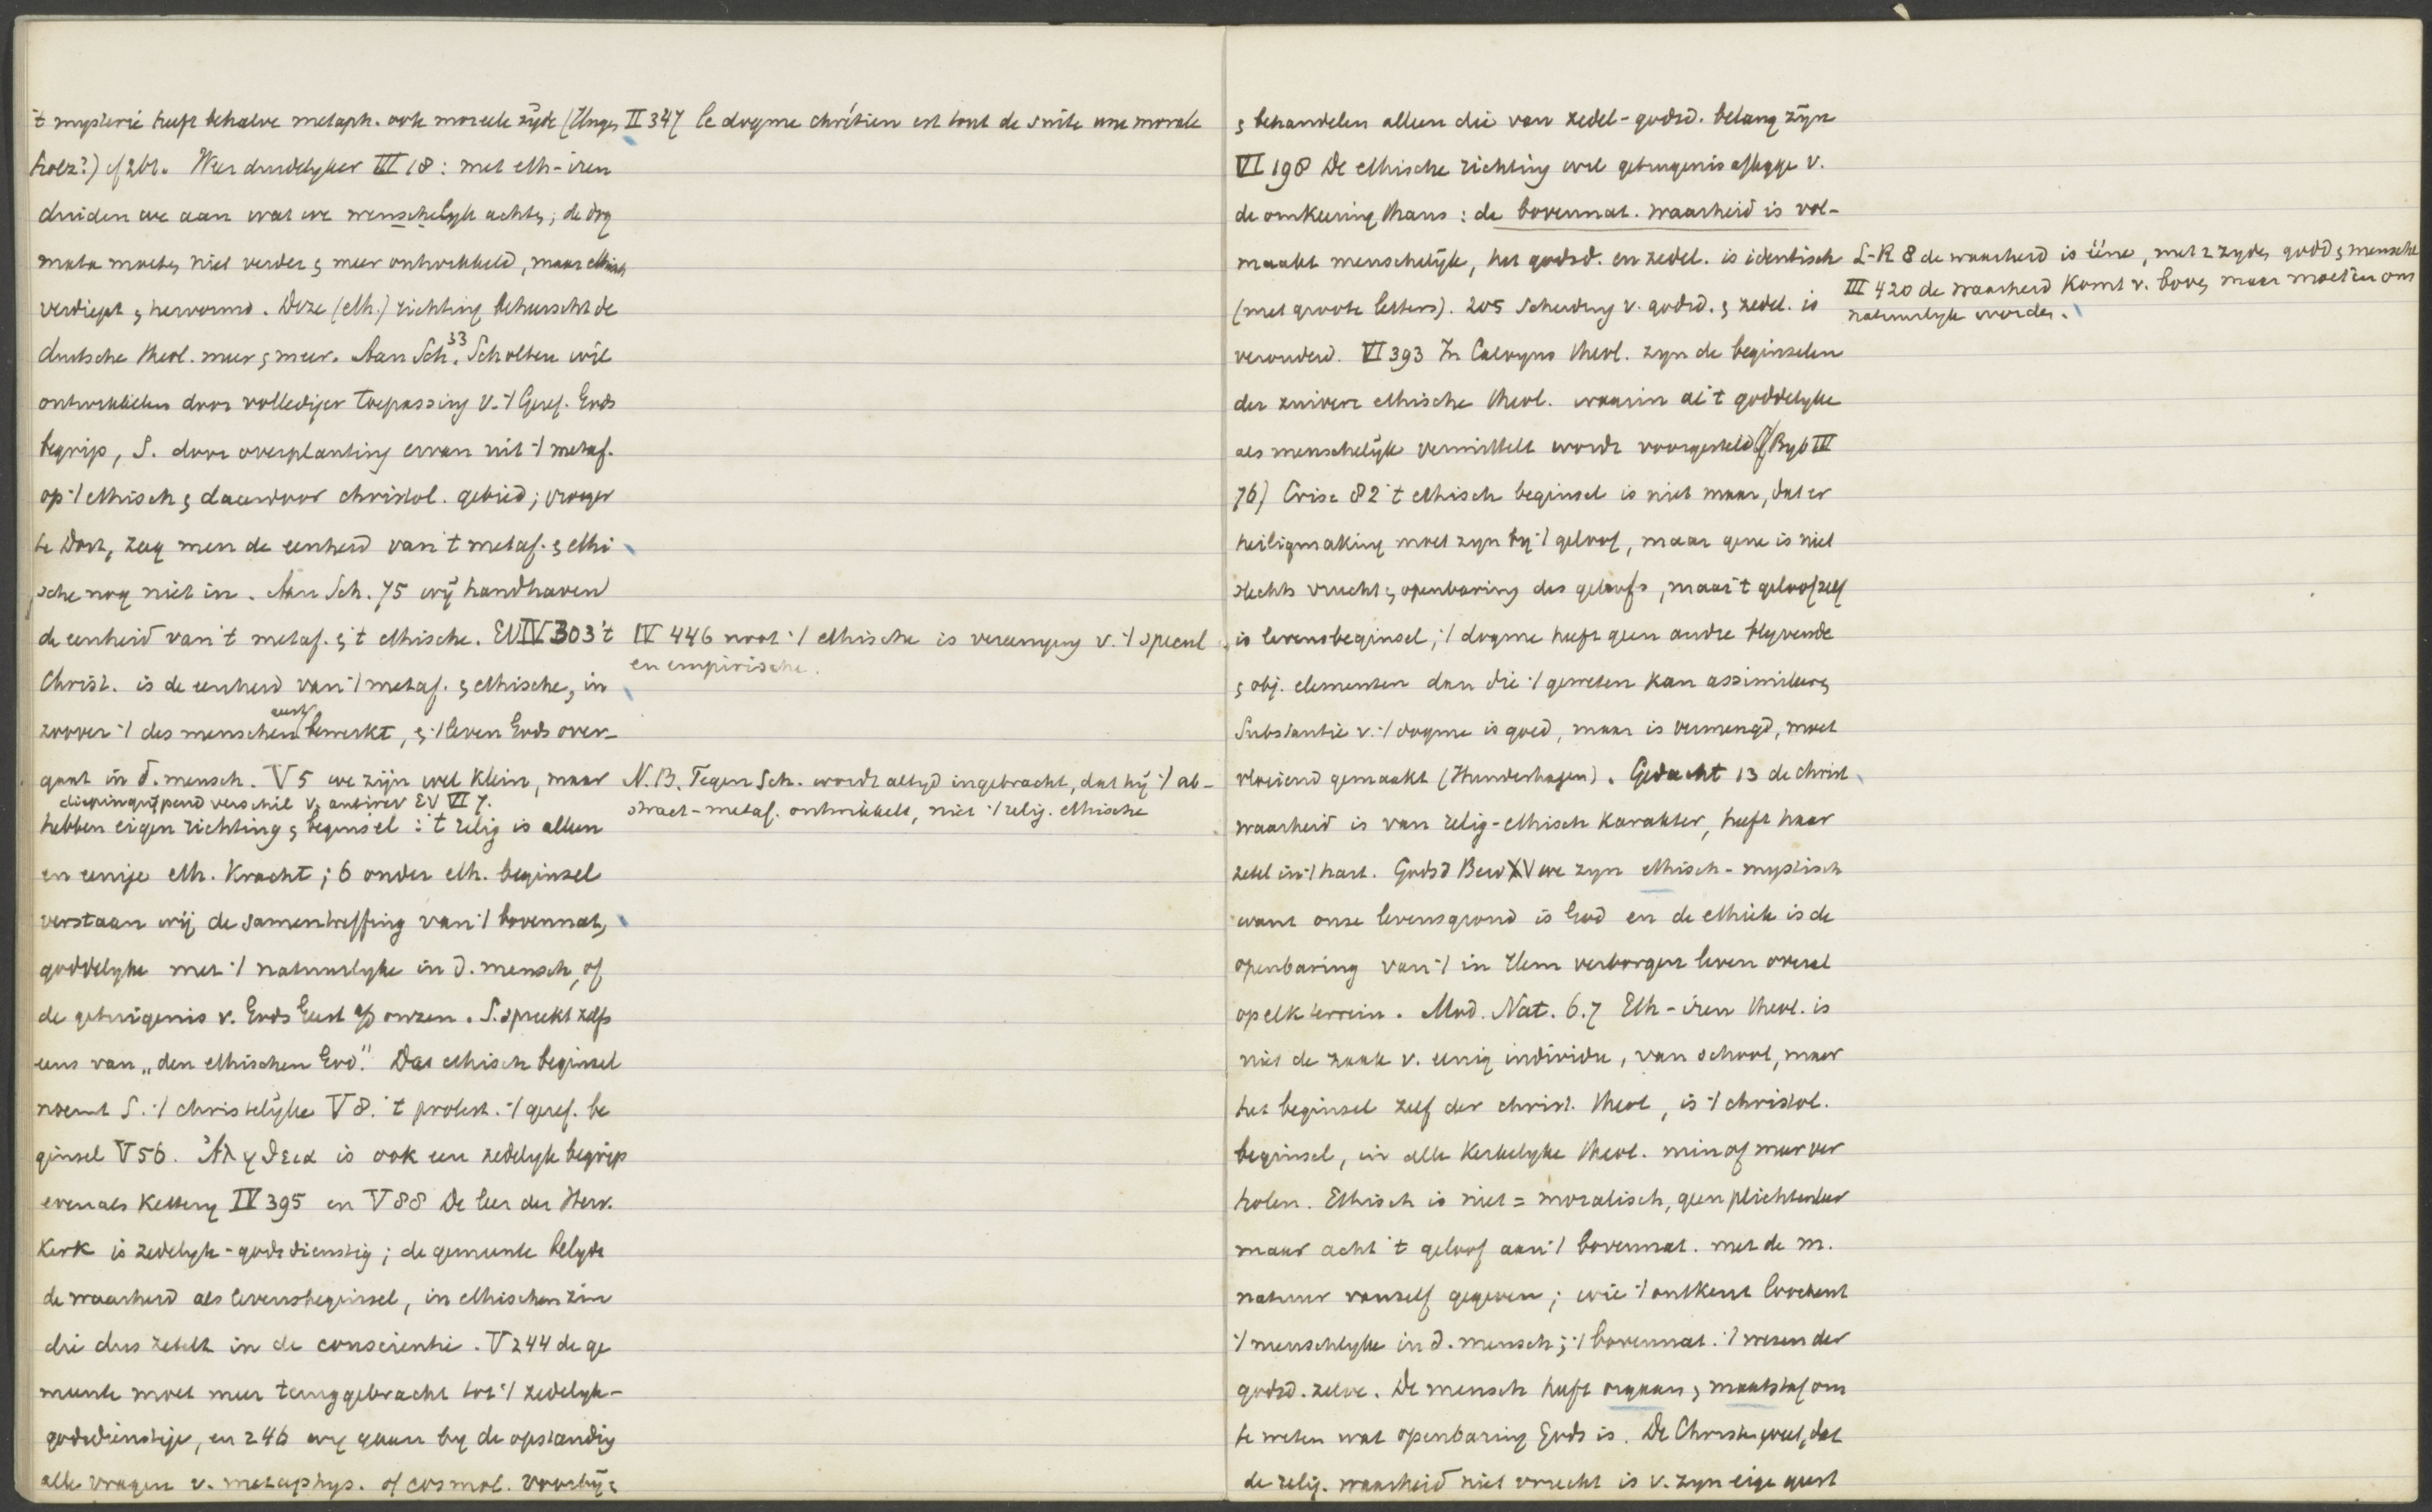 't mysterie heeft behalve metaph. ook moreele zijde (Unges
II 347 le dogme chrétien est tout de suite une morale
holz?) cf 261. Weer duidelyker III 18: met eth-iren
duiden we aan wat we menschelyk achten; de dog
mata moeten niet verder en meer ontwikkeld, maar ethisch
verdiept en hervormd. Deze (eth.) richting beheerscht de
duitsche theol. meer en meer. Aan Sch. 33 Scholten wil
ontwikkelen door vollediger toepassing v. 't Geref. Gods
begrip, S. door overplanting ervan uit 't metaf.
op 't ethisch en daardoor christol. gebied; vroeger
te Dort, zag men de eenheid van 't metaf. en ethi
sche nog niet in. Aan Sch. 75 wij handhaven
de eenheid van 't metaf. en 't ethische. EV IV 303 't
IV 446 noot 't ethische is vereeniging v. 't specul
en empirische.
Christ. is de eenheid van 't metaf. en ethische, in
zoover 't des menschen geest bewerkt, en 't leven Gods over-
gaat in d. mensch. V 5 we zijn wel klein, maar
N.B. Tegen Sch. wordt altyd ingebracht, dat hij 't ab-
stract-metaf. ontwikkelt, niet 't relig. ethische
diepingrijpend verschil v. antirev EV VI 7.
hebben eigen richting en beginsel: 't relig is alleen
en eenige eth. Kracht; 6 onder eth. beginsel
verstaan wij de samentreffing van 't bovennat,
goddelyke met 't natuurlyke in d. mensch, of
de getuigenis v. Gods Geest op onzen. S. spreekt zelfs
eens van „den ethischen God." Dat ethisch beginsel
noemt S. 't christelijke V 8. 't protest. 't geref. be
ginsel V 56. Ἀληθεια is ook een zedelyk begrip
evenals Kettery IV 395 en V 88 De leer der Herv.
Kerk is zedelyk-godsdienstig; de gemeente belyde
de waarheid als levensbeginsel, in ethischen zin
die dus zetelt in de conscientie. V 244 de ge
meente moet meer teruggebracht tot 't zedelyk-
godsdienstige, en 246 wij gaan by de opstanding
alle vragen v. metaphys. of cosmol. voorbij en
en behandelen alleen die van zedel-godsd. belang zijn
VI 198 De ethische richting wil getuigenis afleggen v.
de omkeering thans: de bovennat. waarheid is vol-
maakt menschelijk, het godsd. en zedel. is identisch
(met groote letters). 205 Scheiding v. godsd. en zedel. is
L-R 8 de waarheid is ééne, met 2 zyden godd en mensche
III 420 de waarheid komt v. boven maar moet in ons
natuurlyk worden.
verouderd. VI 393 In Calvyns theol. zyn de beginselen
der zuivere ethische theol. waarin al 't goddelyke
als menschelijk vermittelt wordt voorgesteld (cf Byb III
76) Crise 82 't ethisch beginsel is niet maar, dat er
heiligmaking moet zyn by 't geloof, maar gene is niet
slechts vrucht en openbaring des geloofs, maar 't geloof zelf
is levensbeginsel, 't dogme heeft geen andre blyvende
en obj. elementen dan die 't geweten kan assimileeren
Substantie v. 't dogme is goed, maar is vermengd, moet
vloeiend gemaakt (Hundeshagen). Gedacht 13 de christ
waarheid is van relig-ethisch karakter, heeft haar
zetel in 't hart. Godsd Bew XV we zyn ethisch-mystisch
want onze levensgrond is God en de ethiek is de
openbaring van 't in Hem verborgen leven overal
op elk terrein. Mod. Nat. 6.7 Eth-iren theol. is
niet de zaak v. eenig individu, van school, maar
het beginsel zelf der christ. theol, is 't christol.
beginsel, in alle Kerkelyke theol. min of meer ver
holen. Ethisch is niet = moralisch, geen plichtenleer
maar acht 't geloof aan 't bovennat. met de m.
natuur vanzelf gegeven; wie 't ontkent loochent
't menschlyke in d. mensch; 't bovennat. 't wezen der
godsd. zelve. De mensch heeft orgaan en maatstaf om
te weten wat openbaring Gods is. De Christen weet, dat
de relig. waarheid niet vrucht is v. zyn eige geest